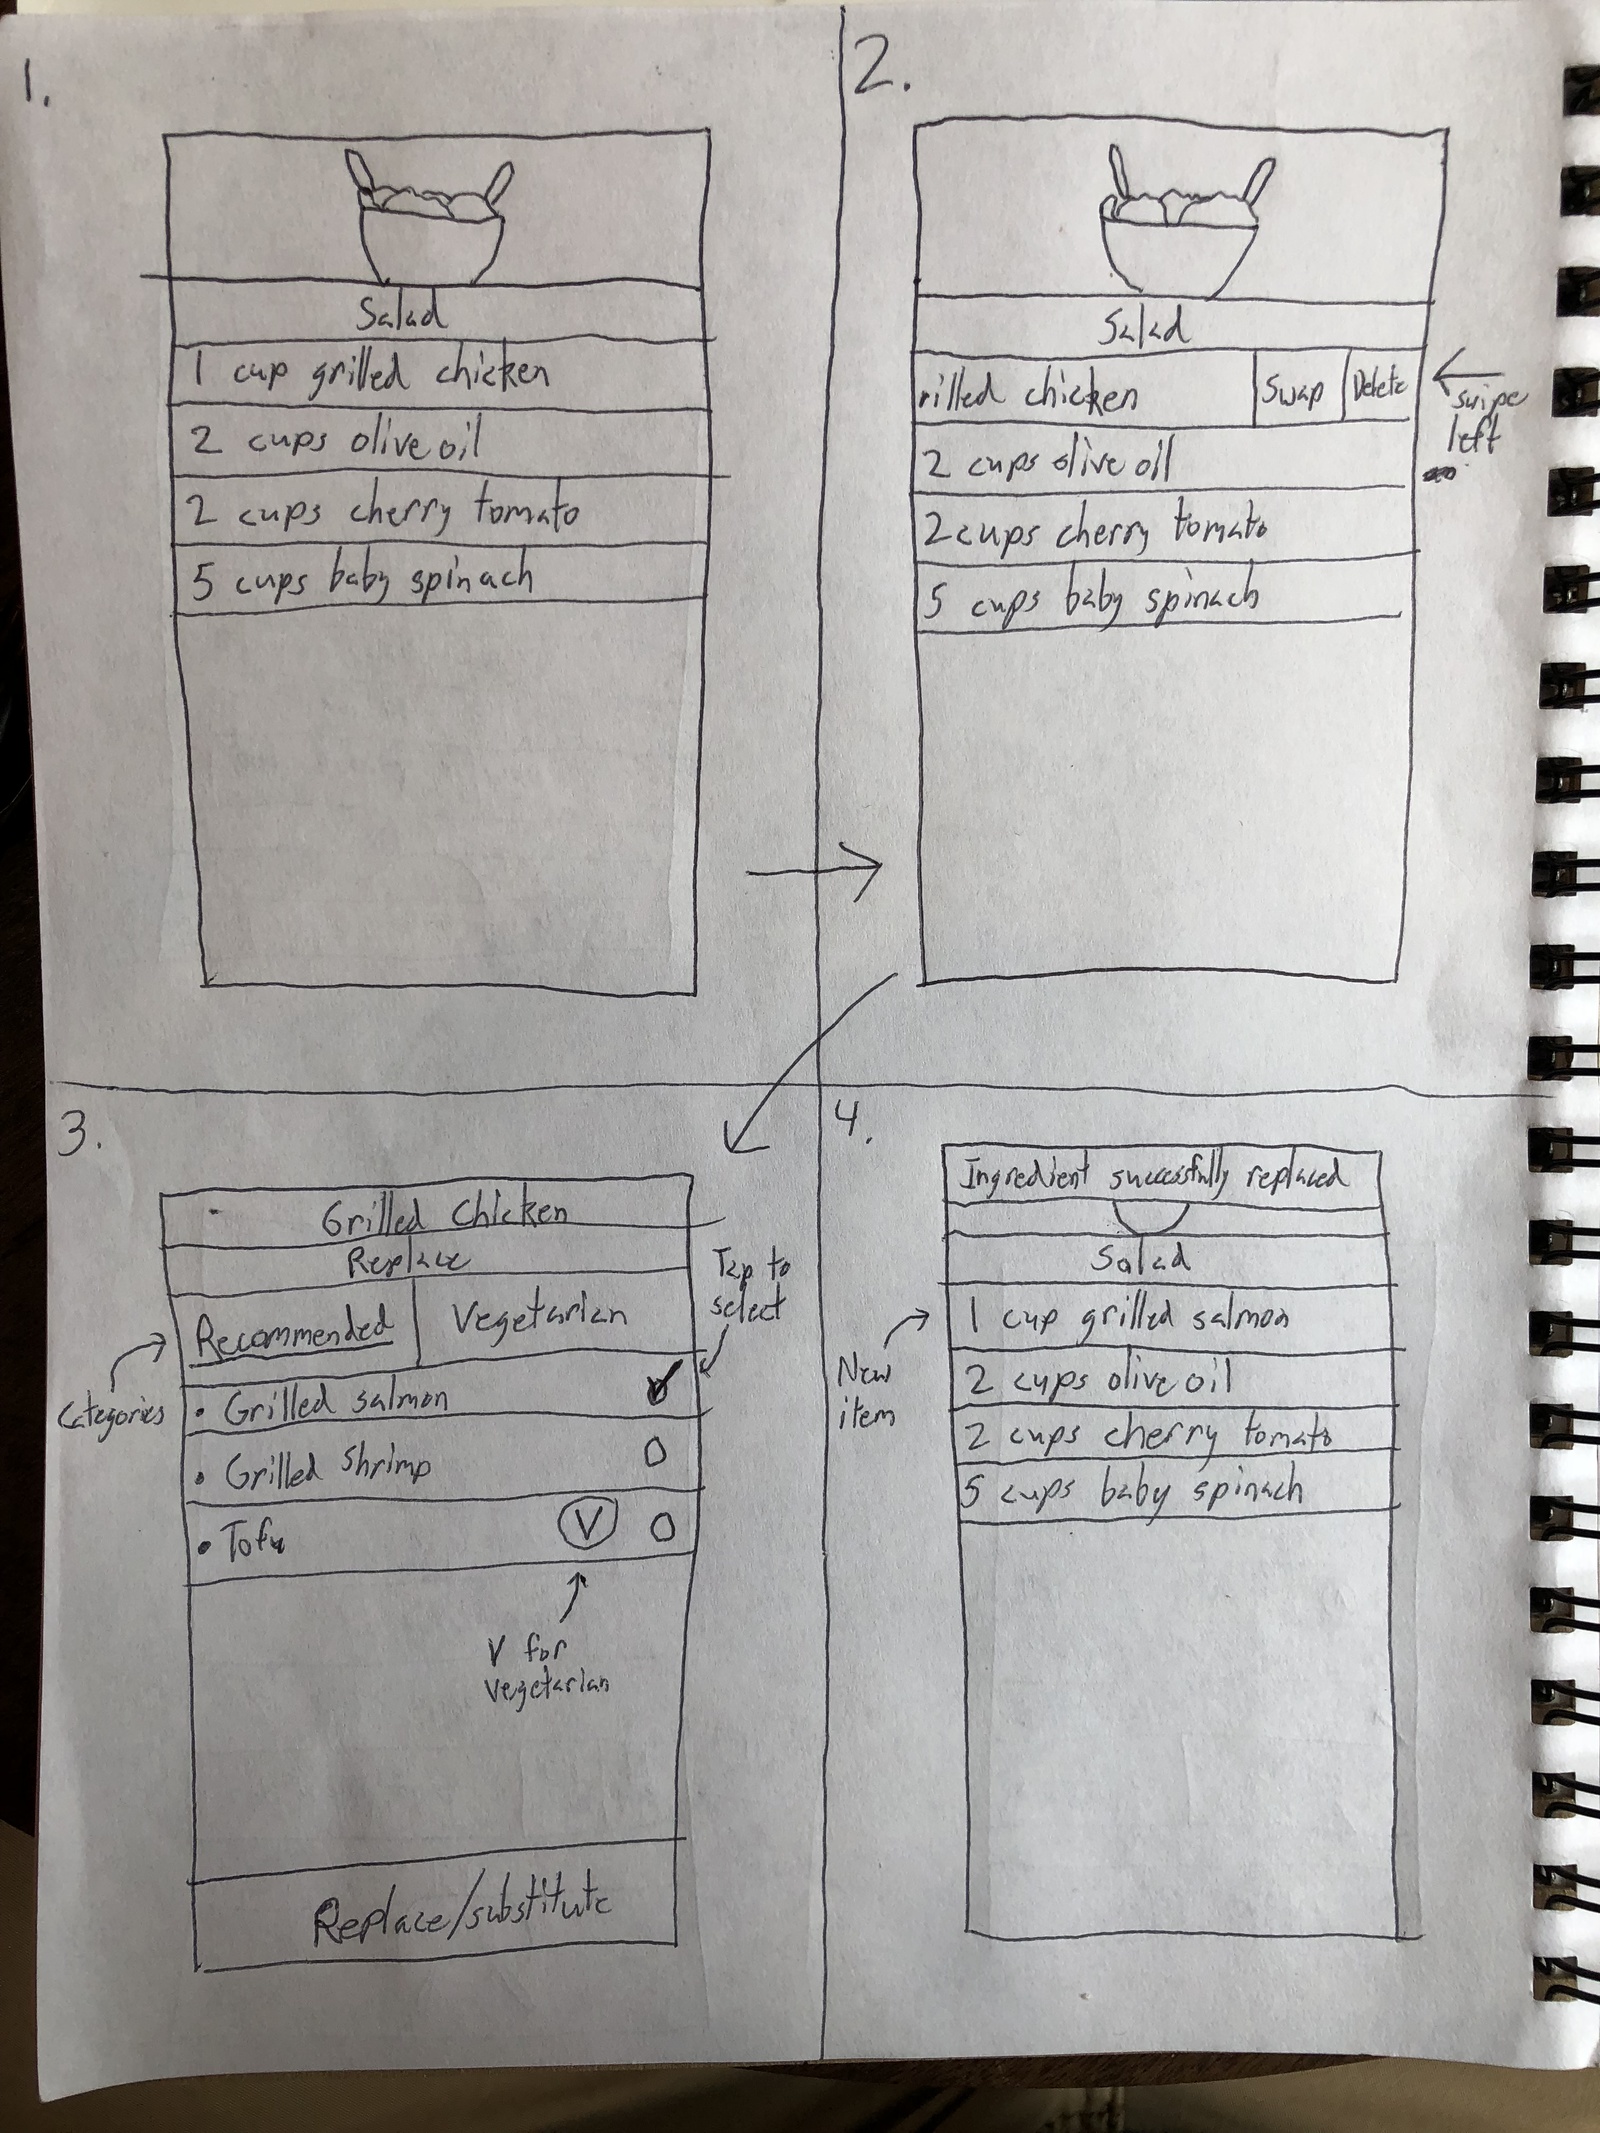 1.
Salad
1 cup grilled chicken
2 cups olive oil
2 cups cherry tomato
5 cups baby spinach
2.
Salad
rilled chicken Swap Delete
swipe
left
2 cups olive oil
2 cups cherry tomato
5 cups baby spinach
3.
Grilled Chicken
Replace
Recommended Vegetarian
Categories
Tap to
select
• Grilled salmon
• Grilled shrimp
• Tofu V
V for
vegetarian
Replace/substitute
4.
Ingredient successfully replaced
Salad
1 cup grilled salmon
New
item
2 cups olive oil
2 cups cherry tomato
5 cups baby spinach